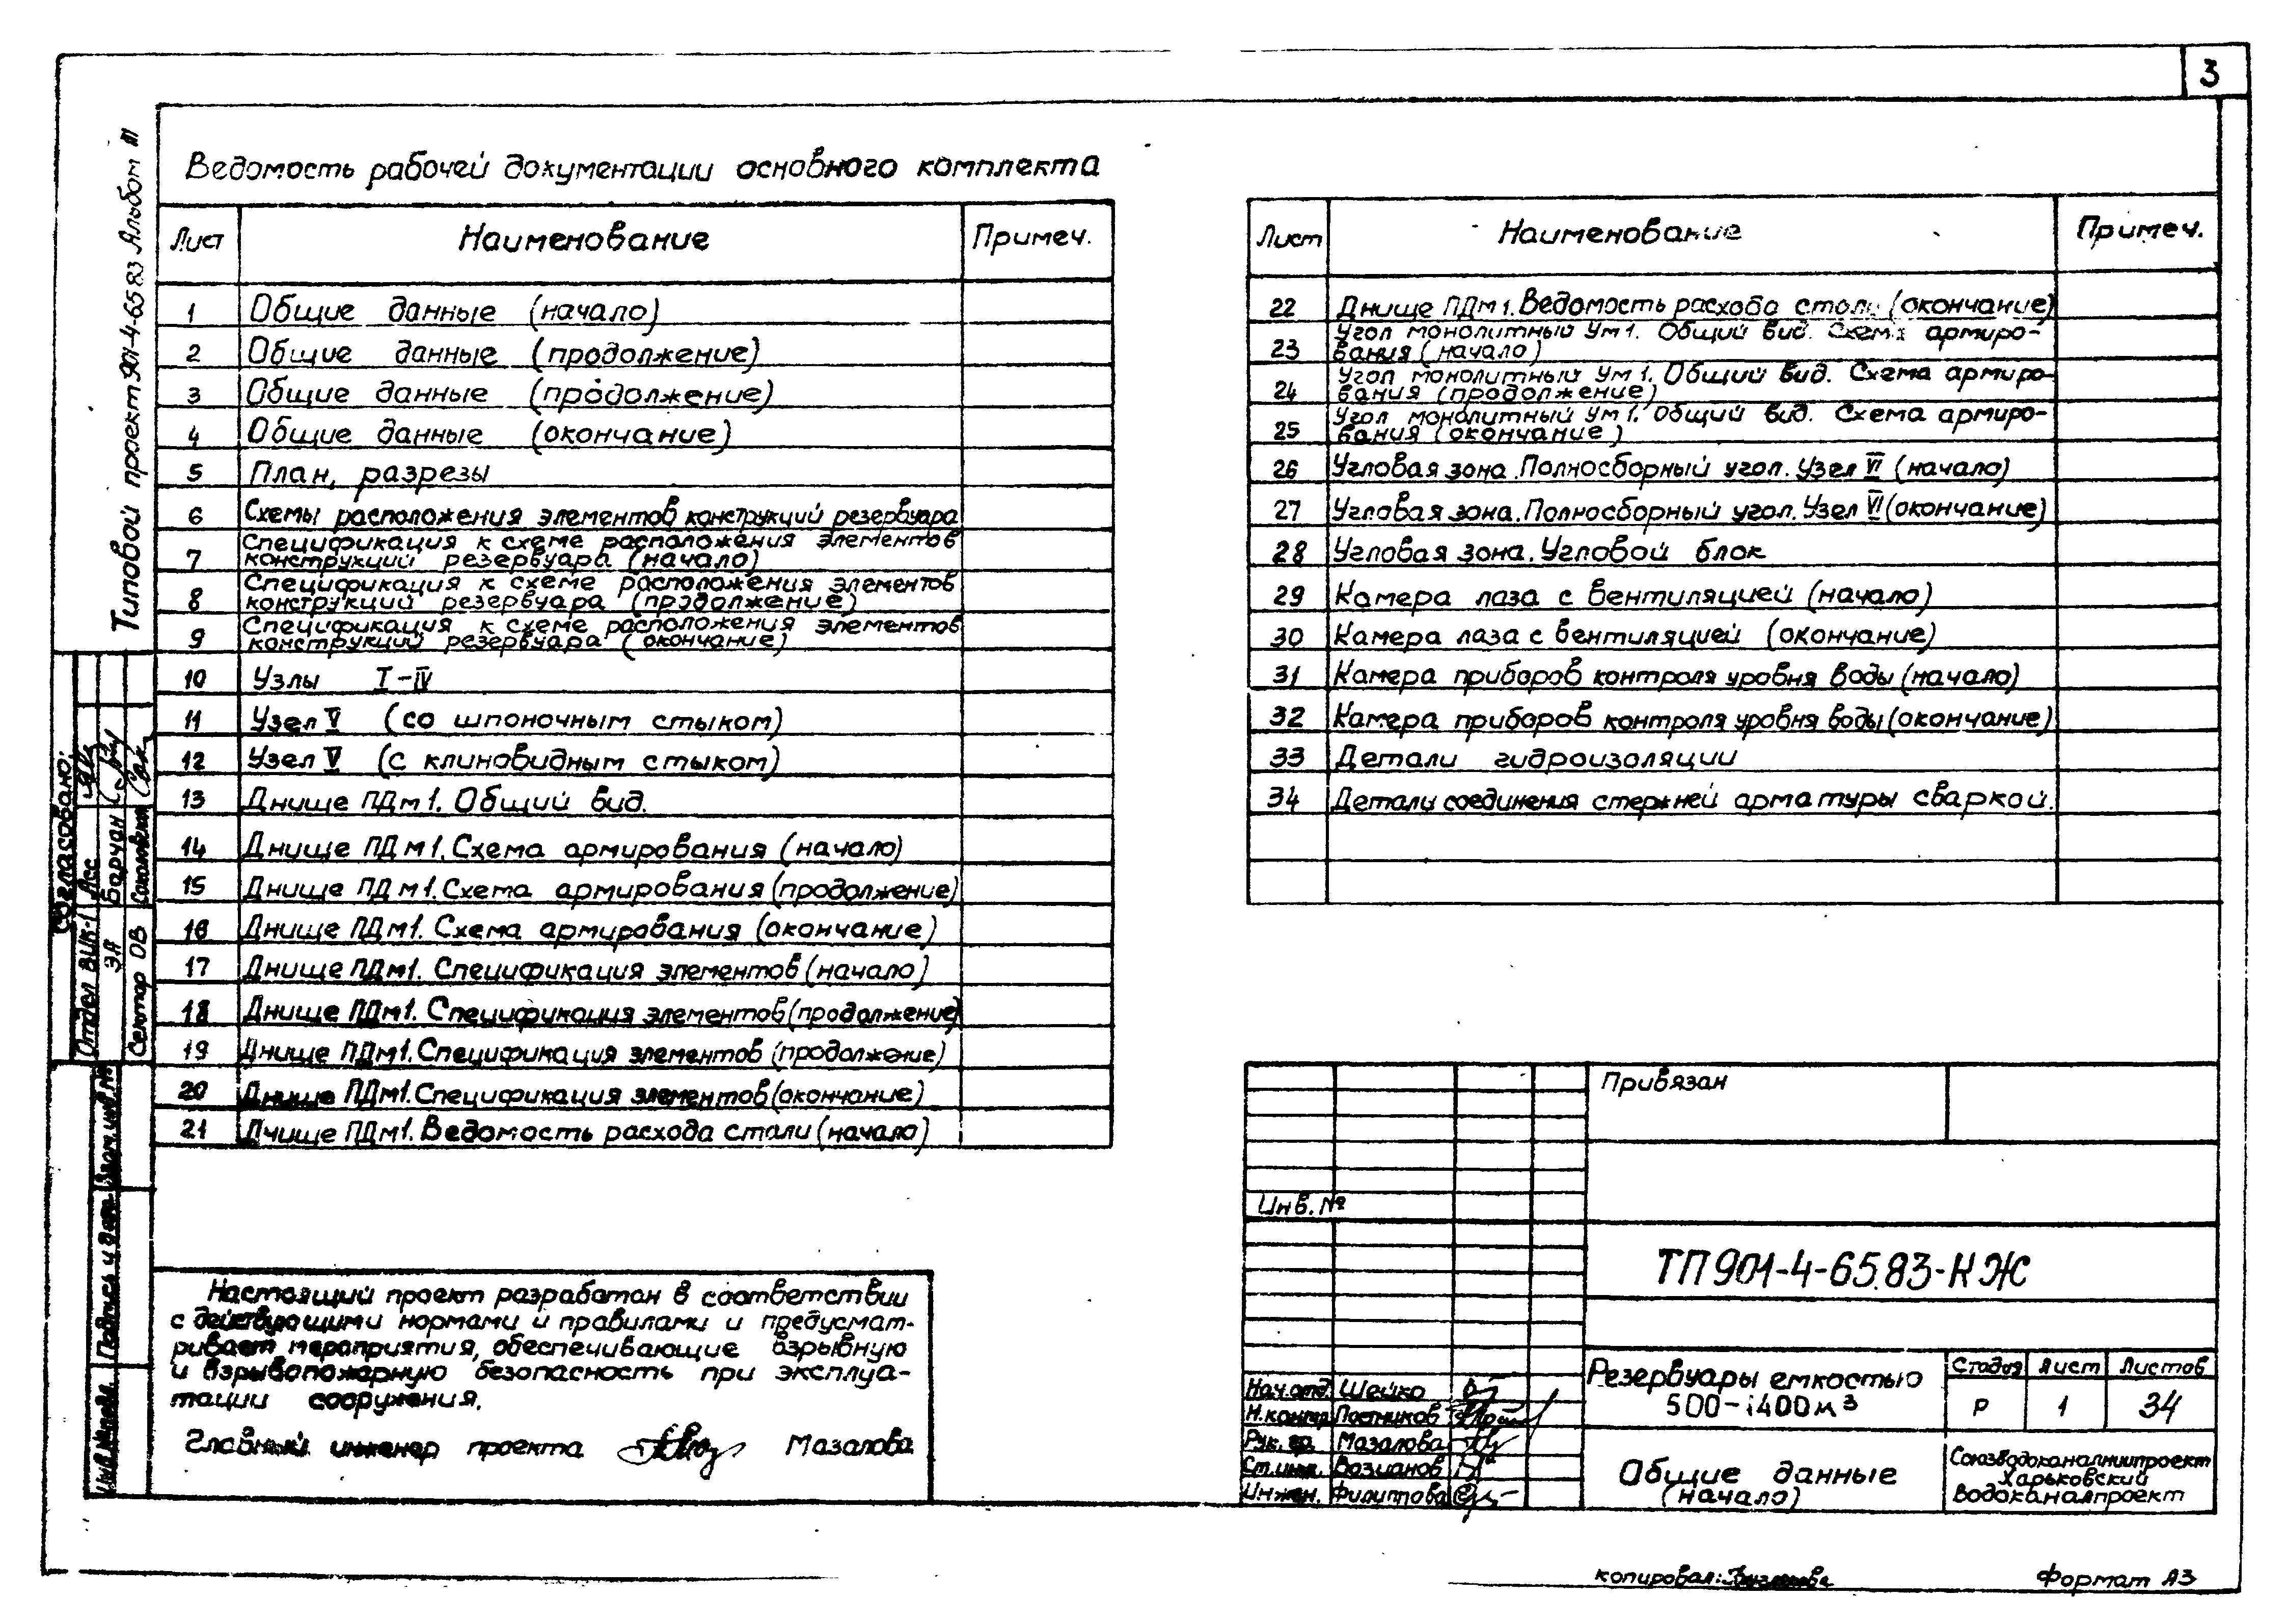 3
Типовой проект 901-4-65.83 Альбом III
Ведомость рабочей документации основного комплекта
Лист Наименование Примеч.
1 Общие данные (начало)
2 Общие данные (продолжение)
3 Общие данные (продолжение)
4 Общие данные (окончание)
5 План, разрезы
6 Схемы расположения элементов конструкций резервуара
7 Спецификация к схеме расположения элементов
конструкций резервуара (начало)
8 Спецификация к схеме расположения элементов
конструкций резервуара (продолжение)
9 Спецификация к схеме расположения элементов
конструкций резервуара (окончание)
10 Узлы I-IV
11 Узел V (со шпоночным стыком)
12 Узел V (с клиновидным стыком)
13 Днище ПДм1. Общий вид.
14 Днище ПДм1. Схема армирования (начало)
15 Днище ПДм1. Схема армирования (продолжение)
16 Днище ПДм1. Схема армирования (окончание)
17 Днище ПДм1. Спецификация элементов (начало)
18 Днище ПДм1. Спецификация элементов (продолжение)
19 Днище ПДм1. Спецификация элементов (продолжение)
20 Днище ПДм1. Спецификация элементов (окончание)
21 Днище ПДм1. Ведомость расхода стали (начало)
Лист Наименование Примеч.
22 Днище ПДм1. Ведомость расхода стали (окончание)
23 Угол монолитный Ум1. Общий вид. Схема армиро-
вания (начало)
24 Угол монолитный Ум1. Общий вид. Схема армиро-
вания (продолжение)
25 Угол монолитный Ум1. Общий вид. Схема армиро-
вания (окончание)
26 Угловая зона. Полносборный угол. Узел VI (начало)
27 Угловая зона. Полносборный угол. Узел VI (окончание)
28 Угловая зона. Угловой блок
29 Камера лаза с вентиляцией (начало)
30 Камера лаза с вентиляцией (окончание)
31 Камера приборов контроля уровня воды (начало)
32 Камера приборов контроля уровня воды (окончание)
33 Детали гидроизоляции
34 Детали соединения стержней арматуры сваркой.
Согласовано:
Отдел ВиК-1 Асс
ЭА Барчан
Сектор ОВ
Взам. инв. №
Подпись и дата
Инв. № подл.
Настоящий проект разработан в соответствии
с действующими нормами и правилами и предусмат-
ривает мероприятия, обеспечивающие взрывную
и взрывопожарную безопасность при эксплуа-
тации сооружения.
Главный инженер проекта Мазалова
Привязан
Инв. №
ТП 901-4-65.83-КЖ
Нач. отд. Шейко
Н. контр. Постников
Рук. гр. Мазалова
Ст. инж. Возианов
Инжен. Филиппова
Резервуары емкостью
500-1400 м³
Стадия Лист Листов
Р 1 34
Общие данные
(начало)
Союзводоканалниипроект
Харьковский
Водоканалпроект
копировал:
Формат А3